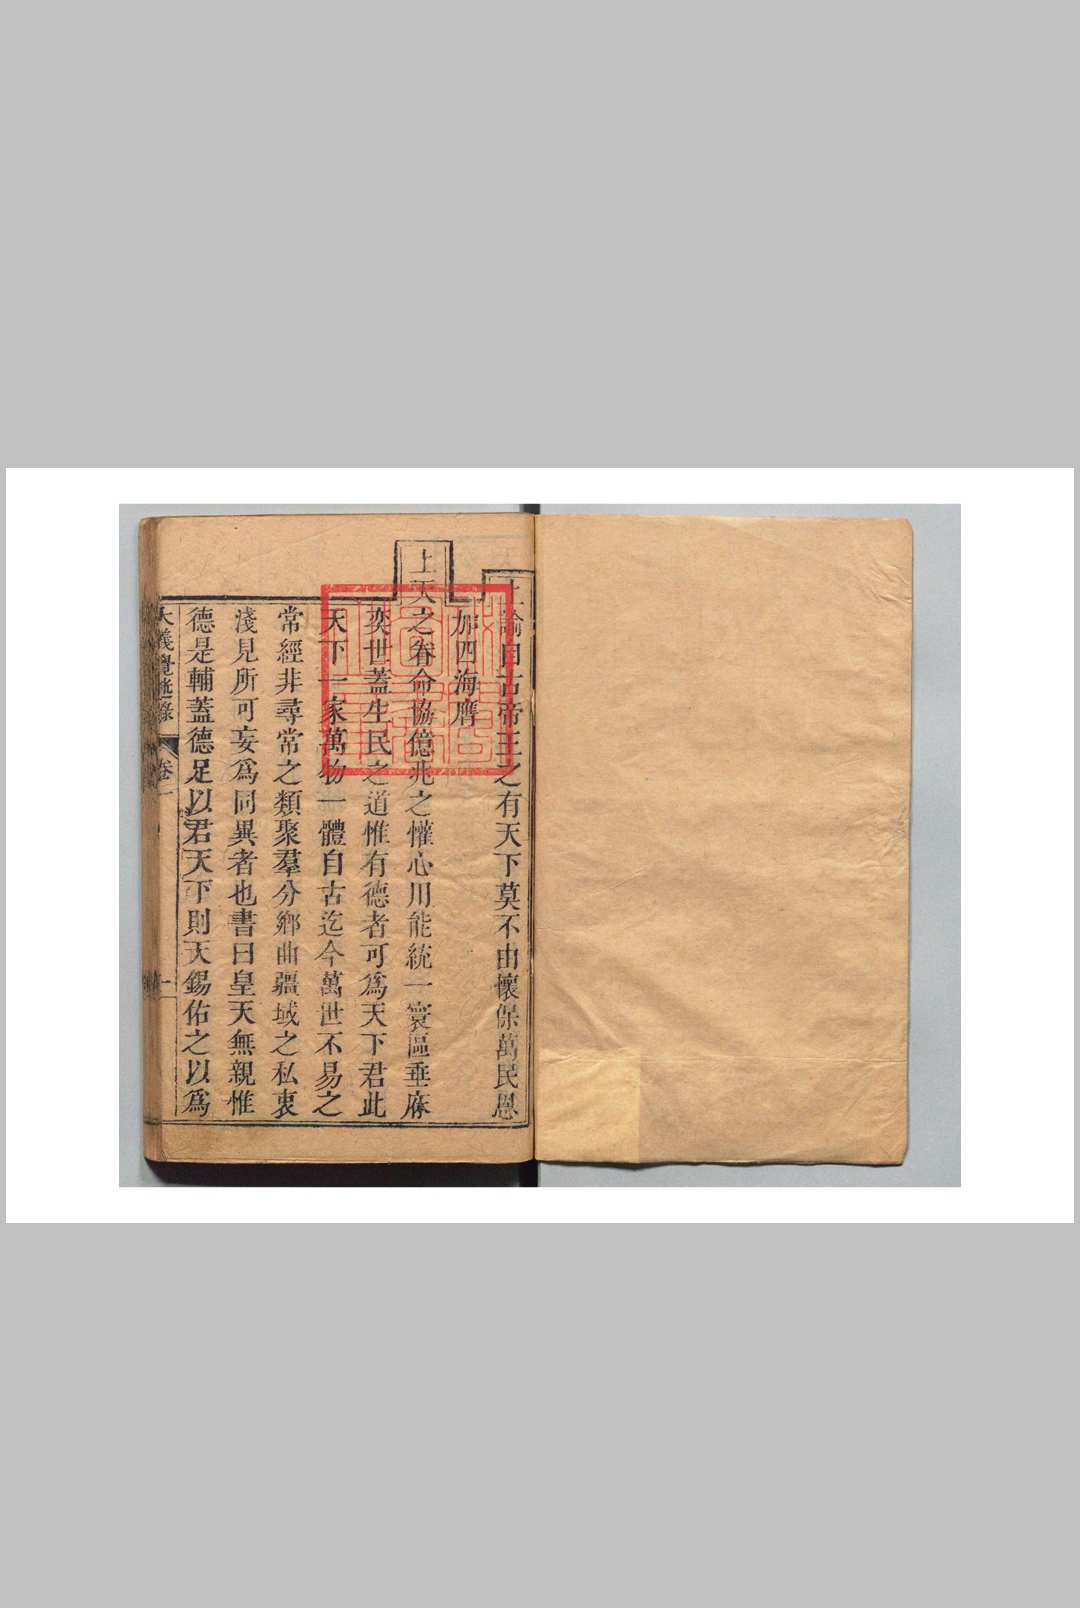 上諭自古帝王之有天下莫不由懷保萬民恩
加四海膺
上天之眷命協億兆之懽心用能統一寰區垂庥
奕世蓋生民之道惟有德者可為天下君此
天下一家萬物一體自古迄今萬世不易之
常經非尋常之類聚羣分鄉曲疆域之私衷
淺見所可妄為同異者也書曰皇天無親惟
德是輔蓋德足以君天下則天錫佑之以為
大義覺迷錄 卷一 一